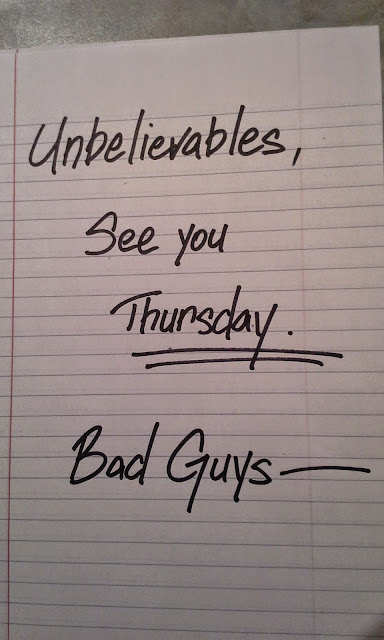 Unbelievables,
See you
Thursday.
Bad Guys—